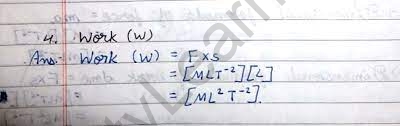 4. Work (W)
Ans:- Work (W) = F×s
= [MLT⁻²][L]
= [ML²T⁻²].